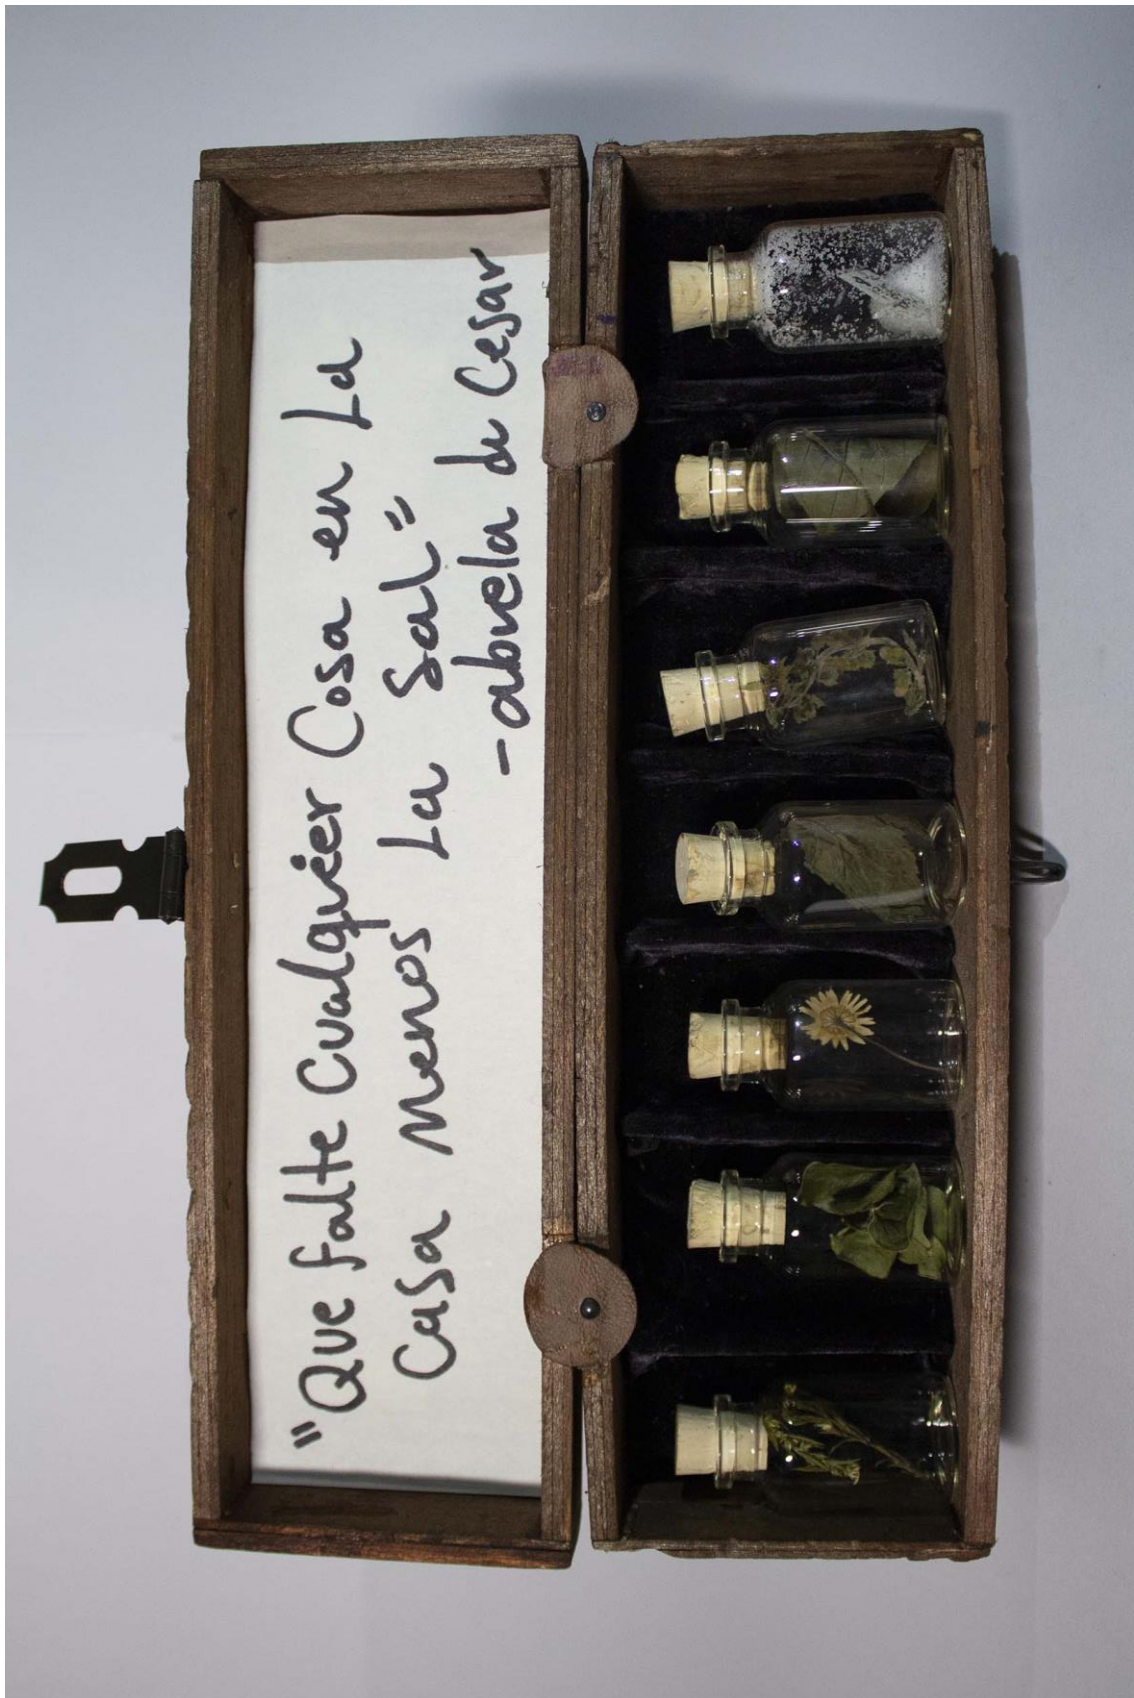 "Que falte cualquier Cosa en La
Casa menos La Sal"
-abuela de Cesar